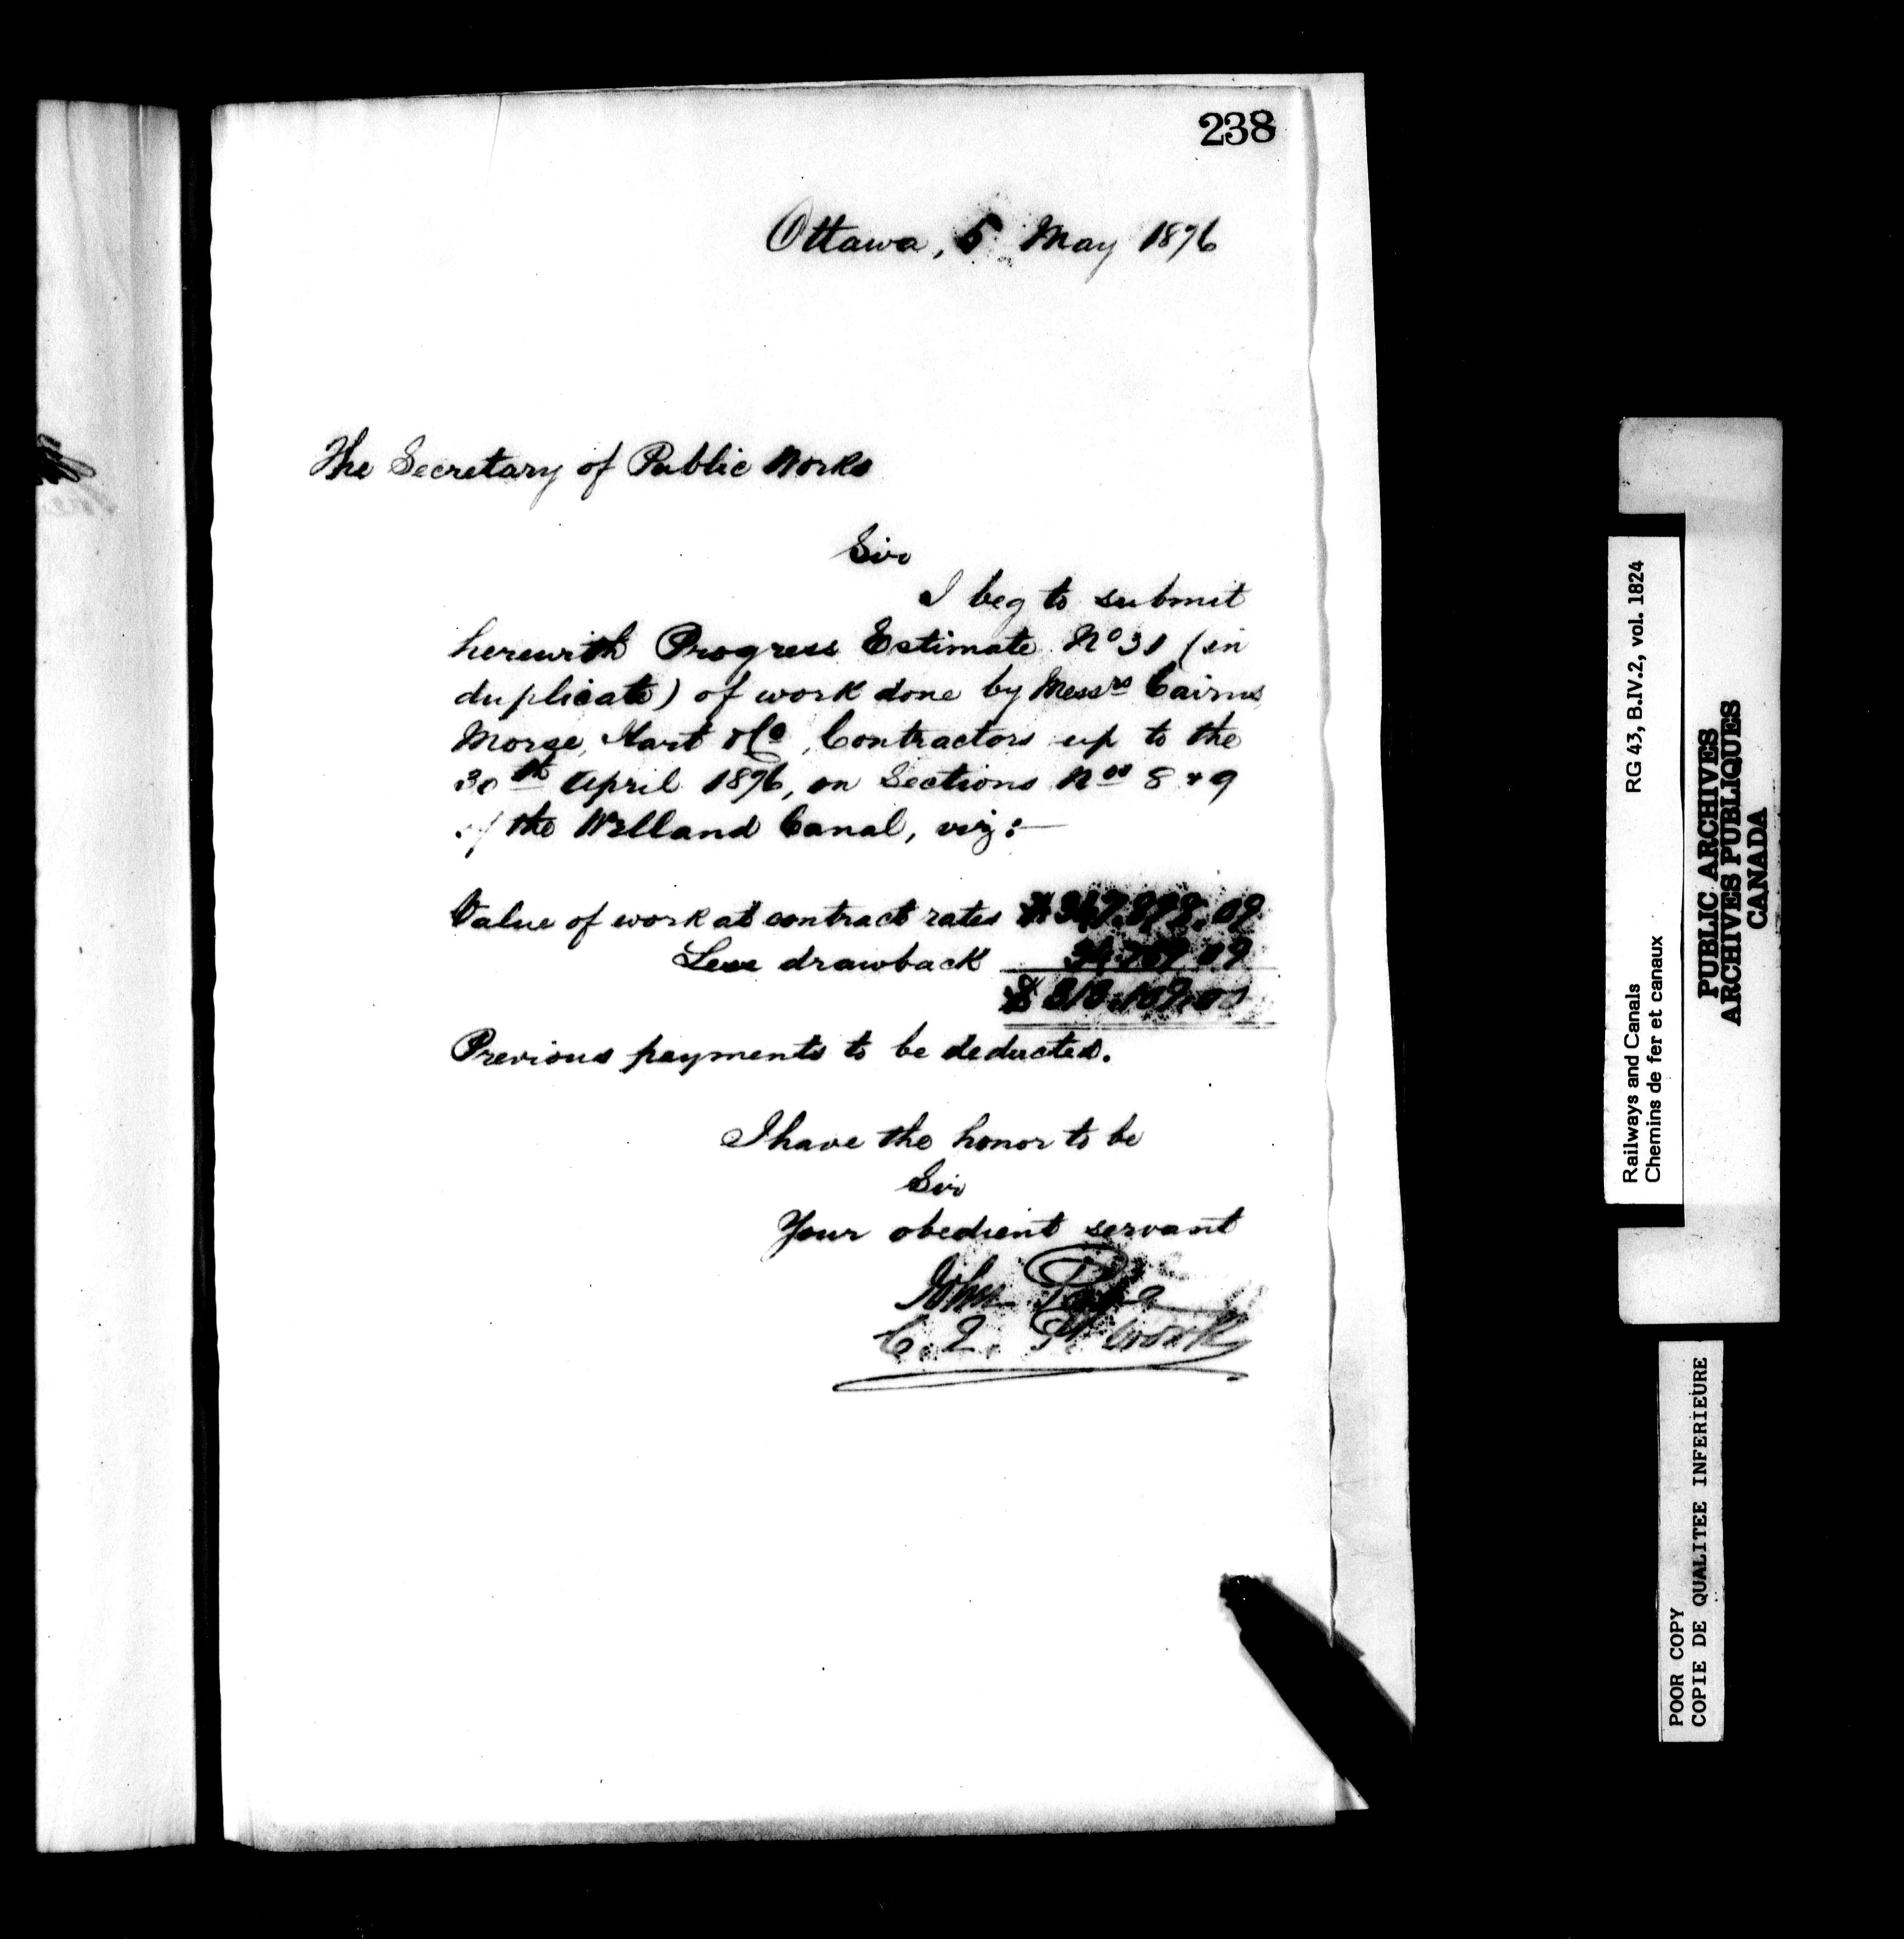 238
Ottawa, 5 May 1876
The Secretary of Public Works
Sir
I beg to submit
herewith Progress Estimate No 31 (in
duplicate) of work done by Messrs Cairns
Morse, Hart & Co, Contractors up to the
30th April 1876, on Sections Nos 8 & 9
of the Welland Canal, viz:—
Value of work at contract rates $347.898.09
Less drawback 34.789.09
$313.109.00
Previous payments to be deducted.
I have the honor to be
Sir
Your obedient servant
John Page
C. E. P. Works
RG 43, B.IV.2, vol. 1824
Railways and Canals
Chemins de fer et canaux
PUBLIC ARCHIVES
ARCHIVES PUBLIQUES
CANADA
POOR COPY
COPIE DE QUALITEE INFERIEURE